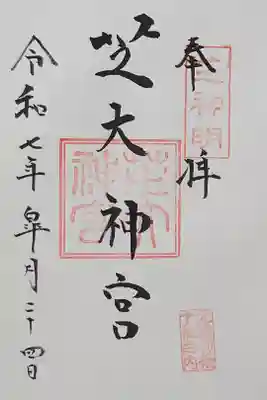 奉拝
芝神明
芝大神宮
芝大神宮
令和七年皐月二十四日